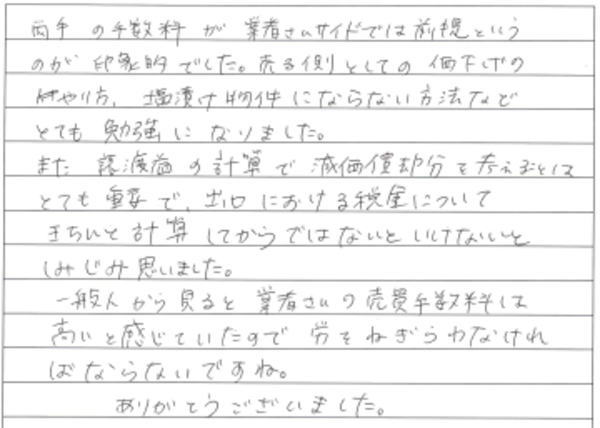 両手の手数料が業者さんサイドでは前提という
のが印象的でした。売る側としての値下げの
やり方、塩漬け物件にならない方法など
とても勉強になりました。
また譲渡益の計算で減価償却分を考えることは
とても重要で、出口における税金について
きちんと計算してからではないといけないと
しみじみ思いました。
一般人から見ると業者さんの売買手数料は
高いと感じていたので労をねぎらわなけれ
ばならないですね。
ありがとうございました。